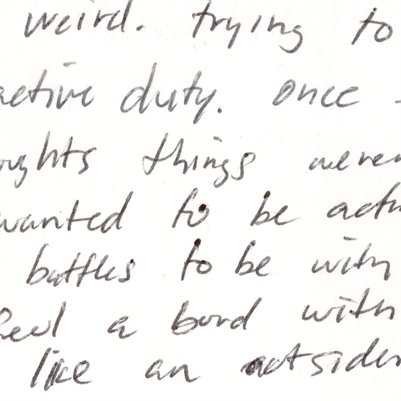 weird. trying to
active duty. once
things weren
wanted to be act
battles to be with
feel a bond with
like an outsider